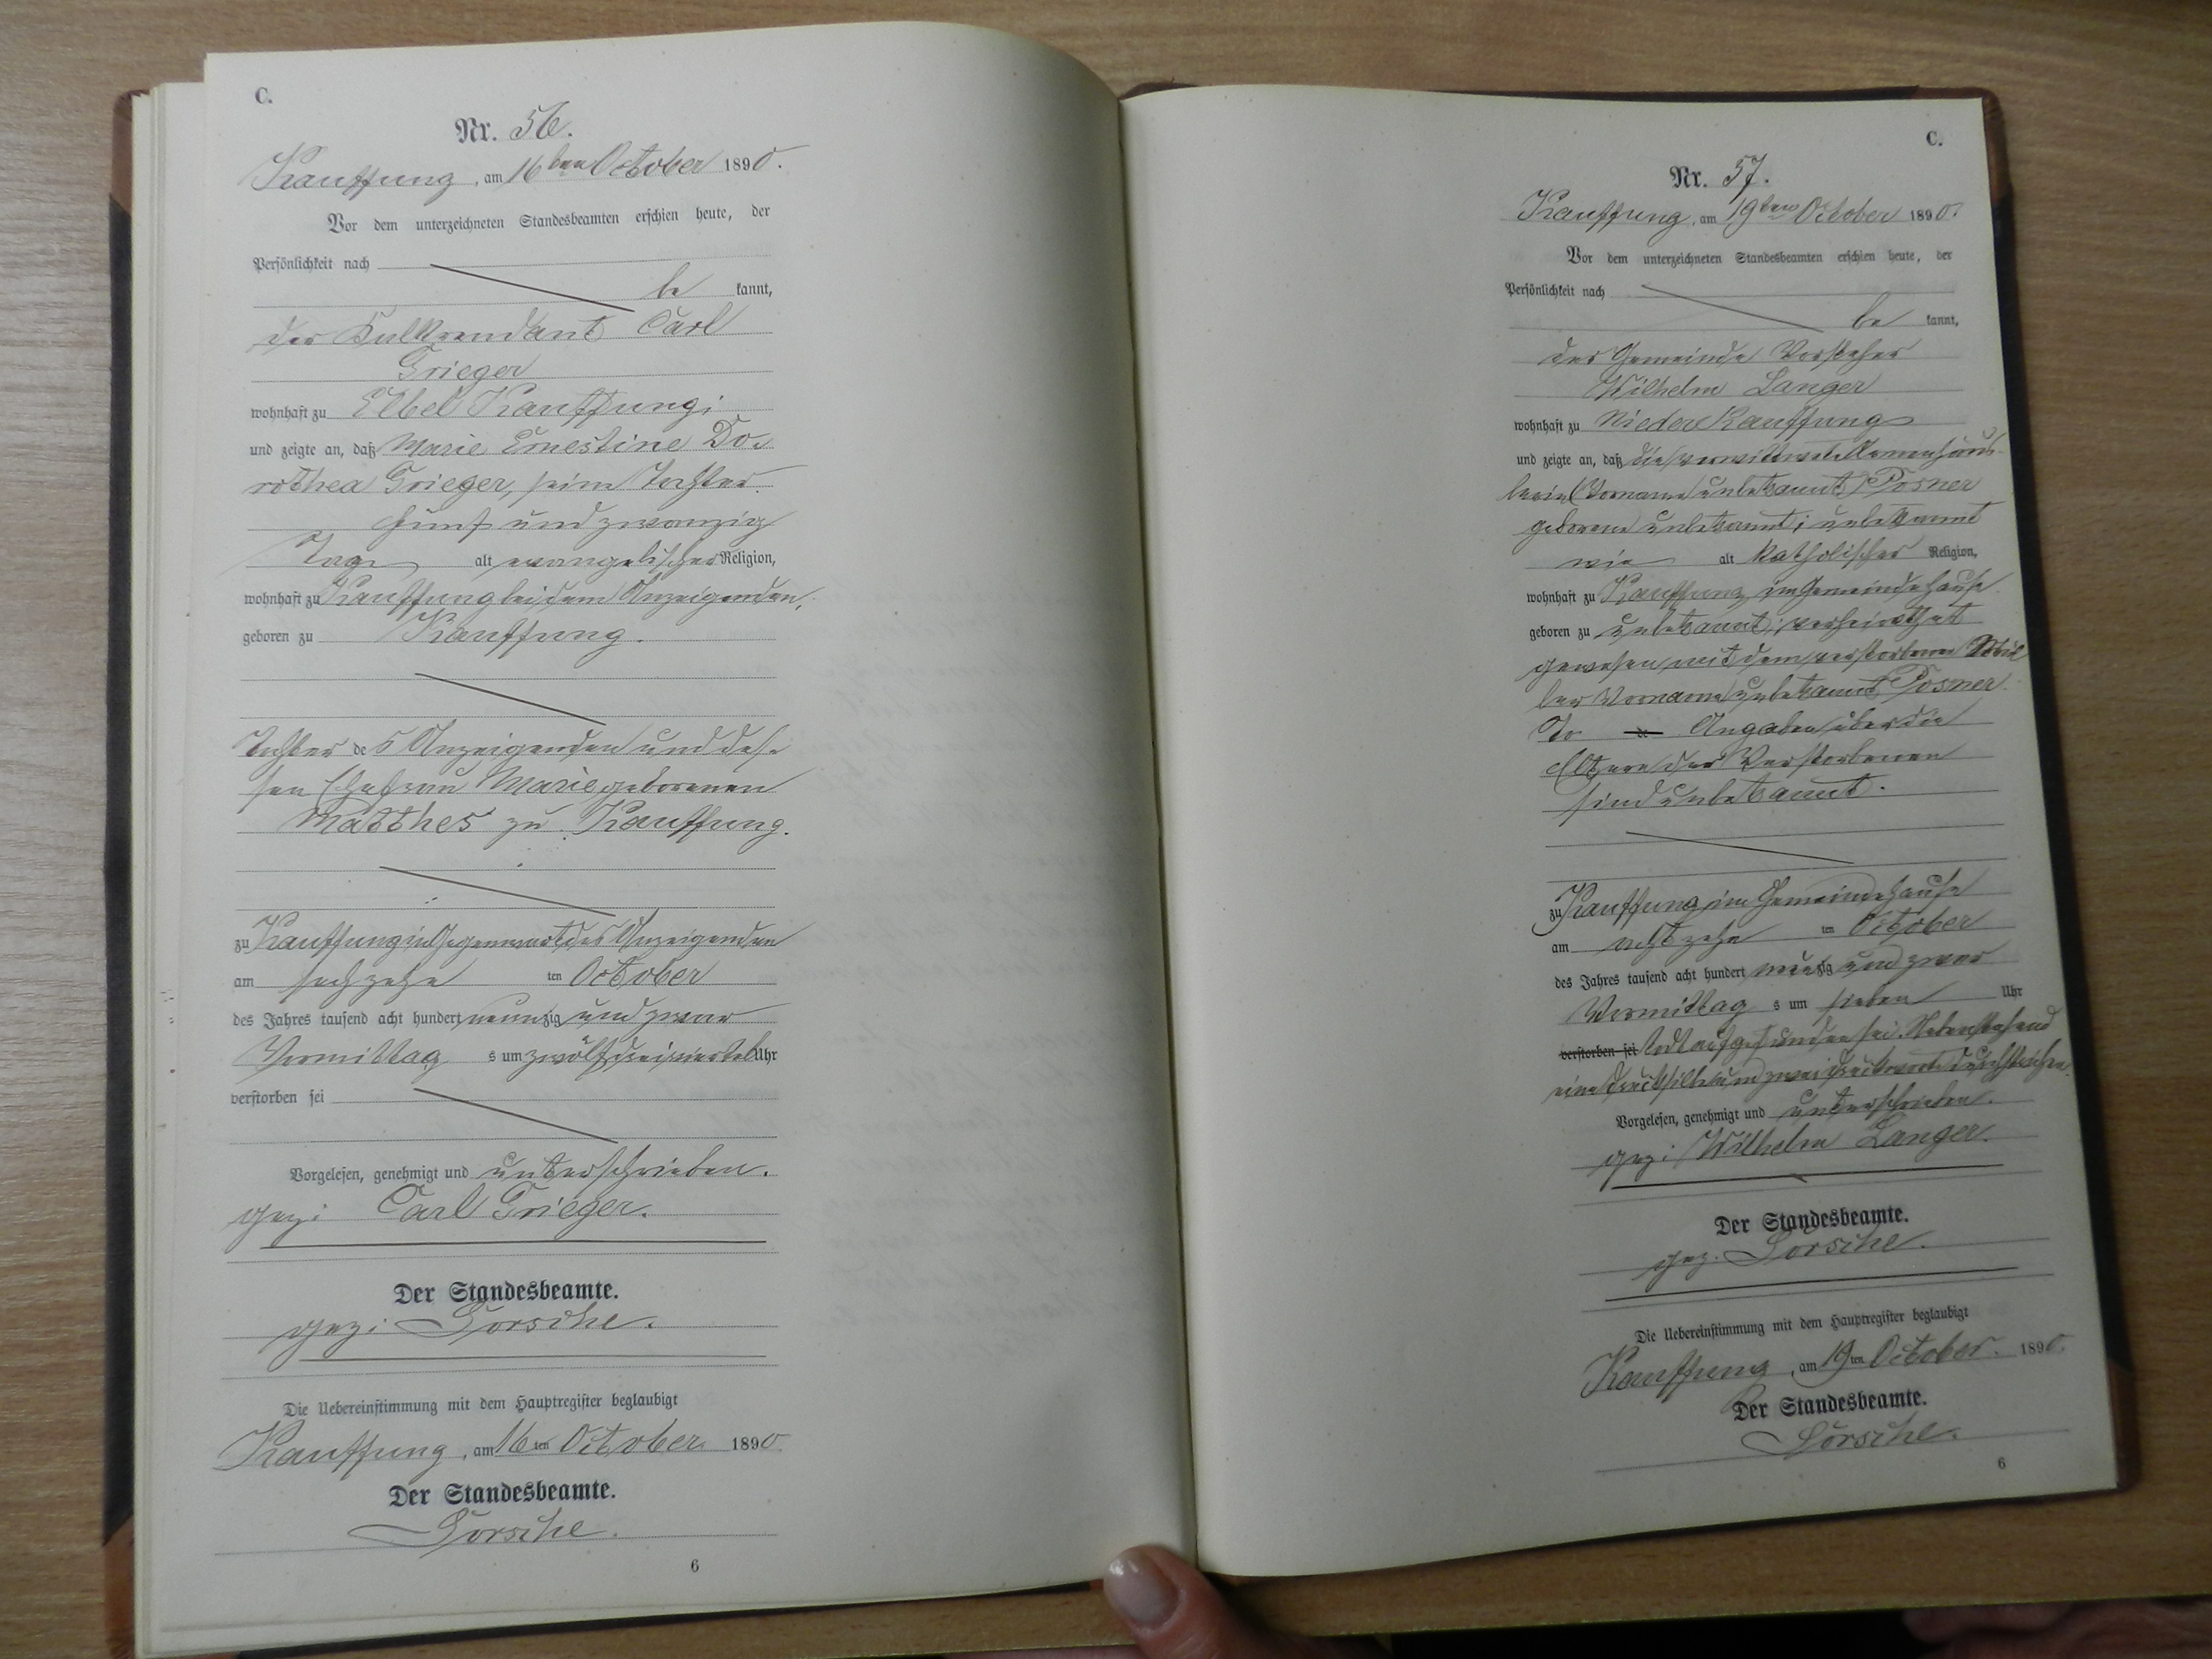 C.
Nr. 56.
Kauffung, am 16ten October 1890.
Vor dem unterzeichneten Standesbeamten erschien heute, der
Persönlichkeit nach
be kannt,
der Kalkrendant Carl
Grieger
wohnhaft zu Elbel Kauffung;
und zeigte an, daß Marie Ernestine Do-
rothea Grieger, seine Tochter
fünf und zwanzig
Tage alt evangelischer Religion,
wohnhaft zu Kauffung bei dem Anzeigenden,
geboren zu Kauffung.
Tochter des Anzeigenden und des-
sen Ehefrau Marie geborenen
Matthes zu Kauffung.
zu Kauffung in Gegenwart des Anzeigenden
am sechzehn ten October
des Jahres tausend acht hundert neunzig und zwar
Vormittag s um zwölf dreiviertel Uhr
verstorben sei
Vorgelesen, genehmigt und unterschrieben.
gez: Carl Grieger.
Der Standesbeamte.
gez: Sorsche.
Die Uebereinstimmung mit dem Hauptregister beglaubigt
Kauffung, am 16ten October 1890.
Der Standesbeamte.
Sorsche.
6
C.
Nr. 57.
Kauffung, am 19ten October 1890.
Vor dem unterzeichneten Standesbeamten erschien heute, der
Persönlichkeit nach
be kannt,
der Gemeinde Vorsteher
Wilhelm Langer
wohnhaft zu Nieder Kauffung
und zeigte an, daß die verwittwete Armenhäus-
lerin (Vorname unbekannt) Posner
geborene unbekannt; unbekannt
wie alt katholischer Religion,
wohnhaft zu Kauffung im Gemeindehause
geboren zu unbekannt; verheirathet
gewesen mit dem verstorbenen Mül
ler Vorname unbekannt Posner.
To de Angaben über die
Eltern der Verstorbenen
sind unbekannt.
zu Kauffung im Gemeindehause
am achtzehn ten October
des Jahres tausend acht hundert neunzig und zwar
Vormittag s um sieben Uhr
verstorben sei todt aufgefunden sei. Nebenstehend
eine Drucksilbe und zwei Druckworte durchstrichen.
Vorgelesen, genehmigt und unterschrieben.
gez: Wilhelm Langer.
Der Standesbeamte.
gez. Sorsche.
Die Uebereinstimmung mit dem Hauptregister beglaubigt
Kauffung, am 19ten October. 1890.
Der Standesbeamte.
Sorsche.
6